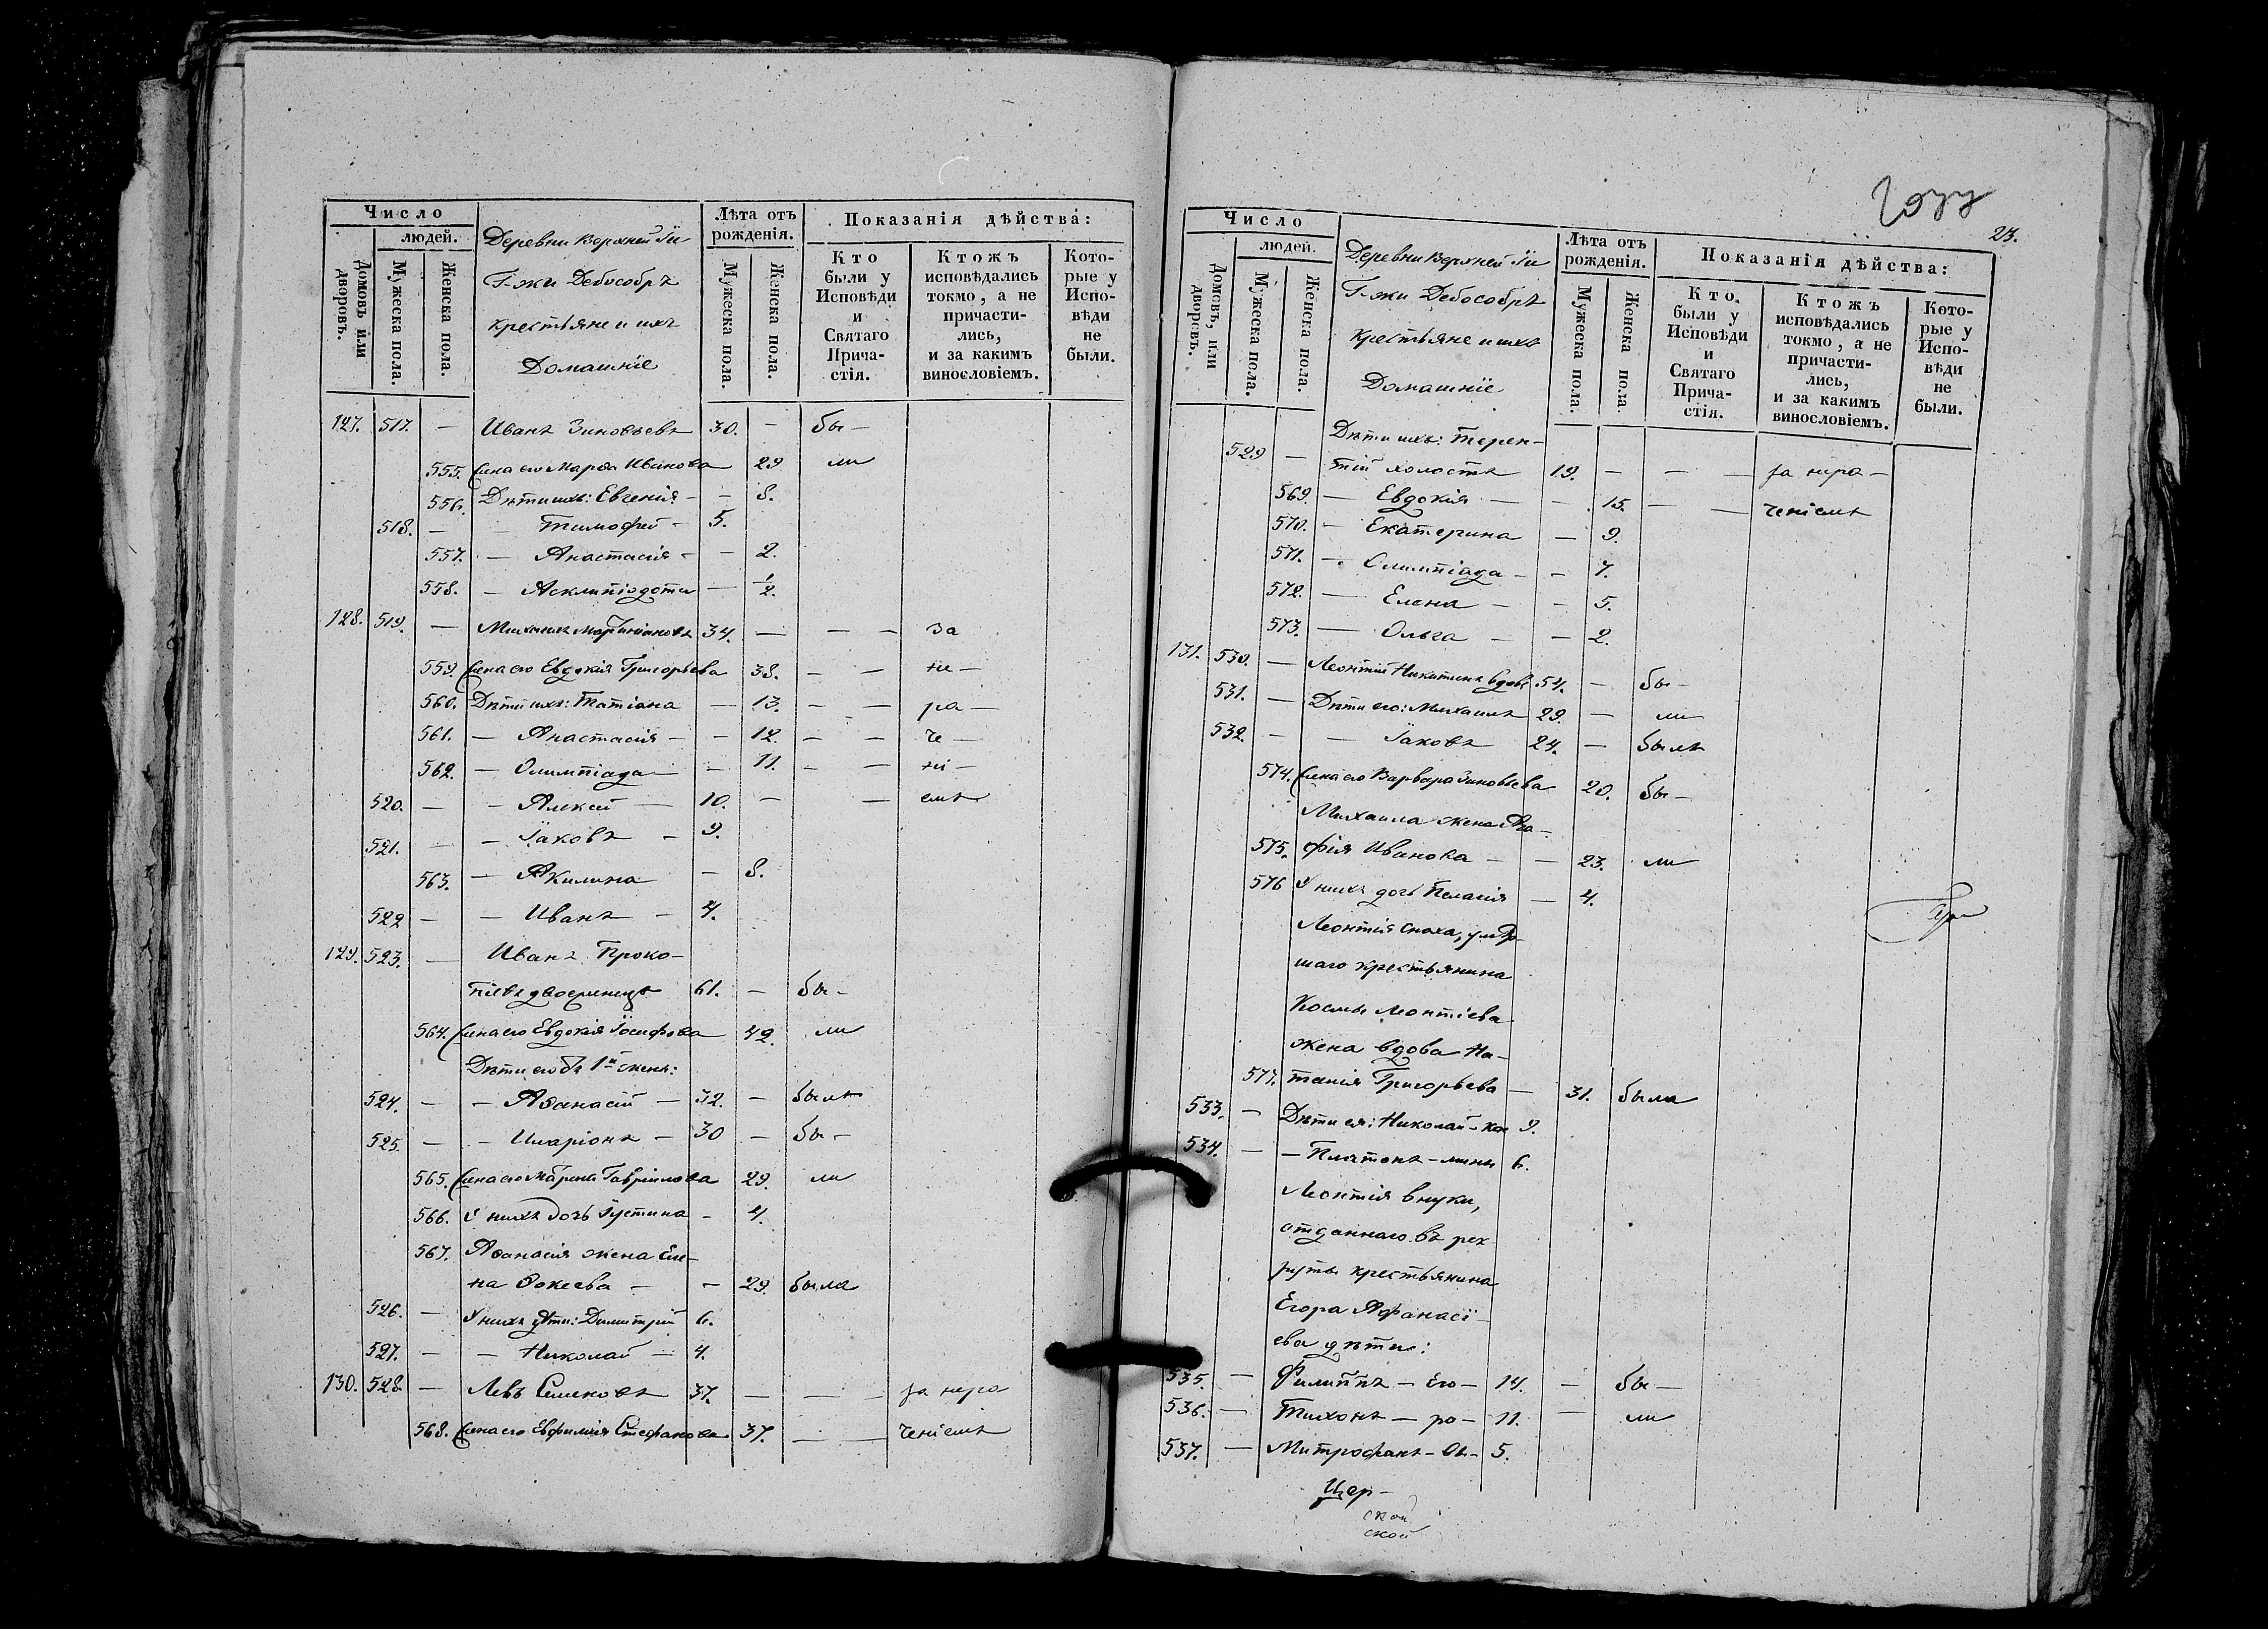 Число
людей.
Домовъ или дворовъ.
Мужеска пола.
Женска пола.
Деревни Верхней
Г-жи Дебособръ
крестьяне и ихъ
Домашніе
Лѣта отъ рожденія.
Мужеска пола.
Женска пола.
Показанія дѣйства:
Кто были у Исповѣди и Святаго Прича-стія.
Ктожъ исповѣдались токмо, а не причасти-лись, и за какимъ винословіемъ.
Кото-рые у Испо-вѣди не были.
127. 517. — Иванъ Зиновьевъ 30. — бы —
555. Жена его Марѳа Иванова 29 ли
556. Дѣти ихъ: Евгенія — — 8.
518. — Тимофей — 5.
557. — Анастасія — — 2.
558. — Асклипіодота — 1/2.
128. 519. — Михаилъ 34. — — — за
559. Жена его Евдокія Григорьева 38. — — не —
560. Дѣти ихъ: Татіана — 13. — — ра —
561. — Анастасія — — 12. — — че —
562. — Олимпіада — — 11. — — ні —
520. — — Алексій — 10. — — емъ
521. — — Іаковъ — 9.
563. — Акилина — 8.
522 — — Иванъ — 4.
129. 523. — Иванъ Проко-
піевъ двоеринецъ 61. — бы —
564. Жена его Евдокія Іосифова 42. ли
Дѣти его отъ 1й жены:
524. — — Аѳанасій — 32. — былъ
525. — — Иларіонъ — 30 — бы —
565. Жена его Марина Гавріилова 29. ли
566. У нихъ дочь Іустина — 4.
567. Аѳанасія жена Еле-
на Ѳокеева — — 29. была
526. — У нихъ дѣти: Димитрій 6.
527. — — Николай — 4.
130. 528 — Левъ Семеновъ 37. — — — за нера
568. Жена его Евфимія Стефанова 37. — — ченіемъ
23.
Число
людей.
Домовъ, или дворовъ.
Мужеска пола.
Женска пола.
Деревни Верхней
Г-жи Дебособръ
крестьяне и ихъ
Домашніе
Лѣта отъ рожденія.
Мужеска пола.
Женска пола.
Показанія дѣйства:
Кто были у Исповѣди и Святаго Прича-стія.
Ктожъ исповѣдались токмо, а не причасти-лись, и за какимъ винословіемъ.
Кото-рые у Испо-вѣди не были.
Дѣти ихъ: Терен-
529 — тій холостъ 19. — — — за нера —
569. — Евдокія — — 15. — — ченіемъ
570. — Екатерина — 9.
571. — Олимпіада — — 7.
572. — Елена — — 5.
573. — Ольга — — 2.
131. 530. — Леонтій Никитинъ вдовъ 54. — бы —
531. — Дѣти его: Михаилъ 29. — ли
532. — — Іаковъ 24. — былъ
574. Жена его Варвара Зиновьева 20. бы —
Михаила жена Ага-
575. фія Иванова — — 23. ли
576 У нихъ дочь Пелагія — 4.
Леонтія сноха, умер-
шаго крестьянина
Космы Леонтіева
жена вдова На-
577. талія Григорьева — 31. была
533. — Дѣти ея: Николай — Кос 9.
534. — — Платонъ — мины 6.
Леонтія внуки,
отданнаго въ рек
руты крестьянина
Егора Афанасі-
ева дѣти:
535. — Филиппъ — Его — 14. — бы —
536. — Тихонъ — ро — 11. — ли
537. — Митрофанъ — вы — 5.
Цер-
ской